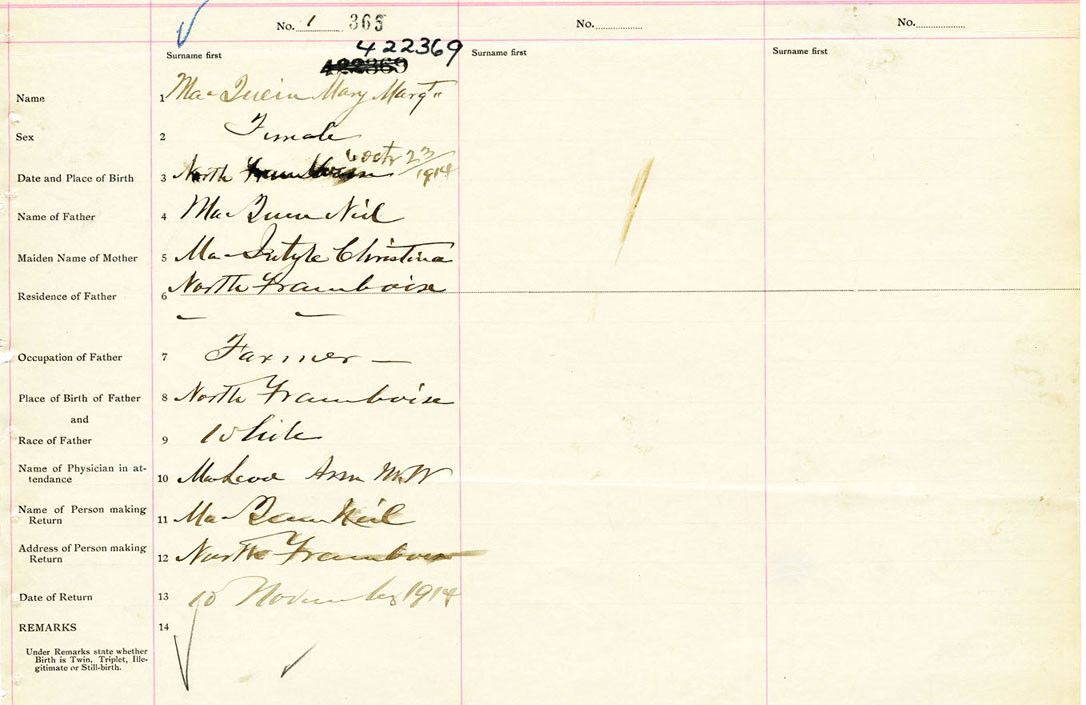 No. 1 365
No.
No.
Surname first
422369
Surname first
Surname first
422369
Name 1 Mac Quein Mary Margt
Sex 2 Female
Date and Place of Birth 3 North Octr 23/1914
Name of Father 4 Mac Neil
Maiden Name of Mother 5 Mac Christina
Residence of Father 6 North Framboise
Occupation of Father 7 Farmer —
Place of Birth of Father 8 North Framboise
and
Race of Father 9 White
Name of Physician in at-
tendance 10 MacLeod Ann
Name of Person making
Return 11 Mac Neil
Address of Person making
Return 12 North Framboise
Date of Return 13 10 November 1914
REMARKS 14
Under Remarks state whether
Birth is Twin, Triplet, Ille-
gitimate or Still-birth.